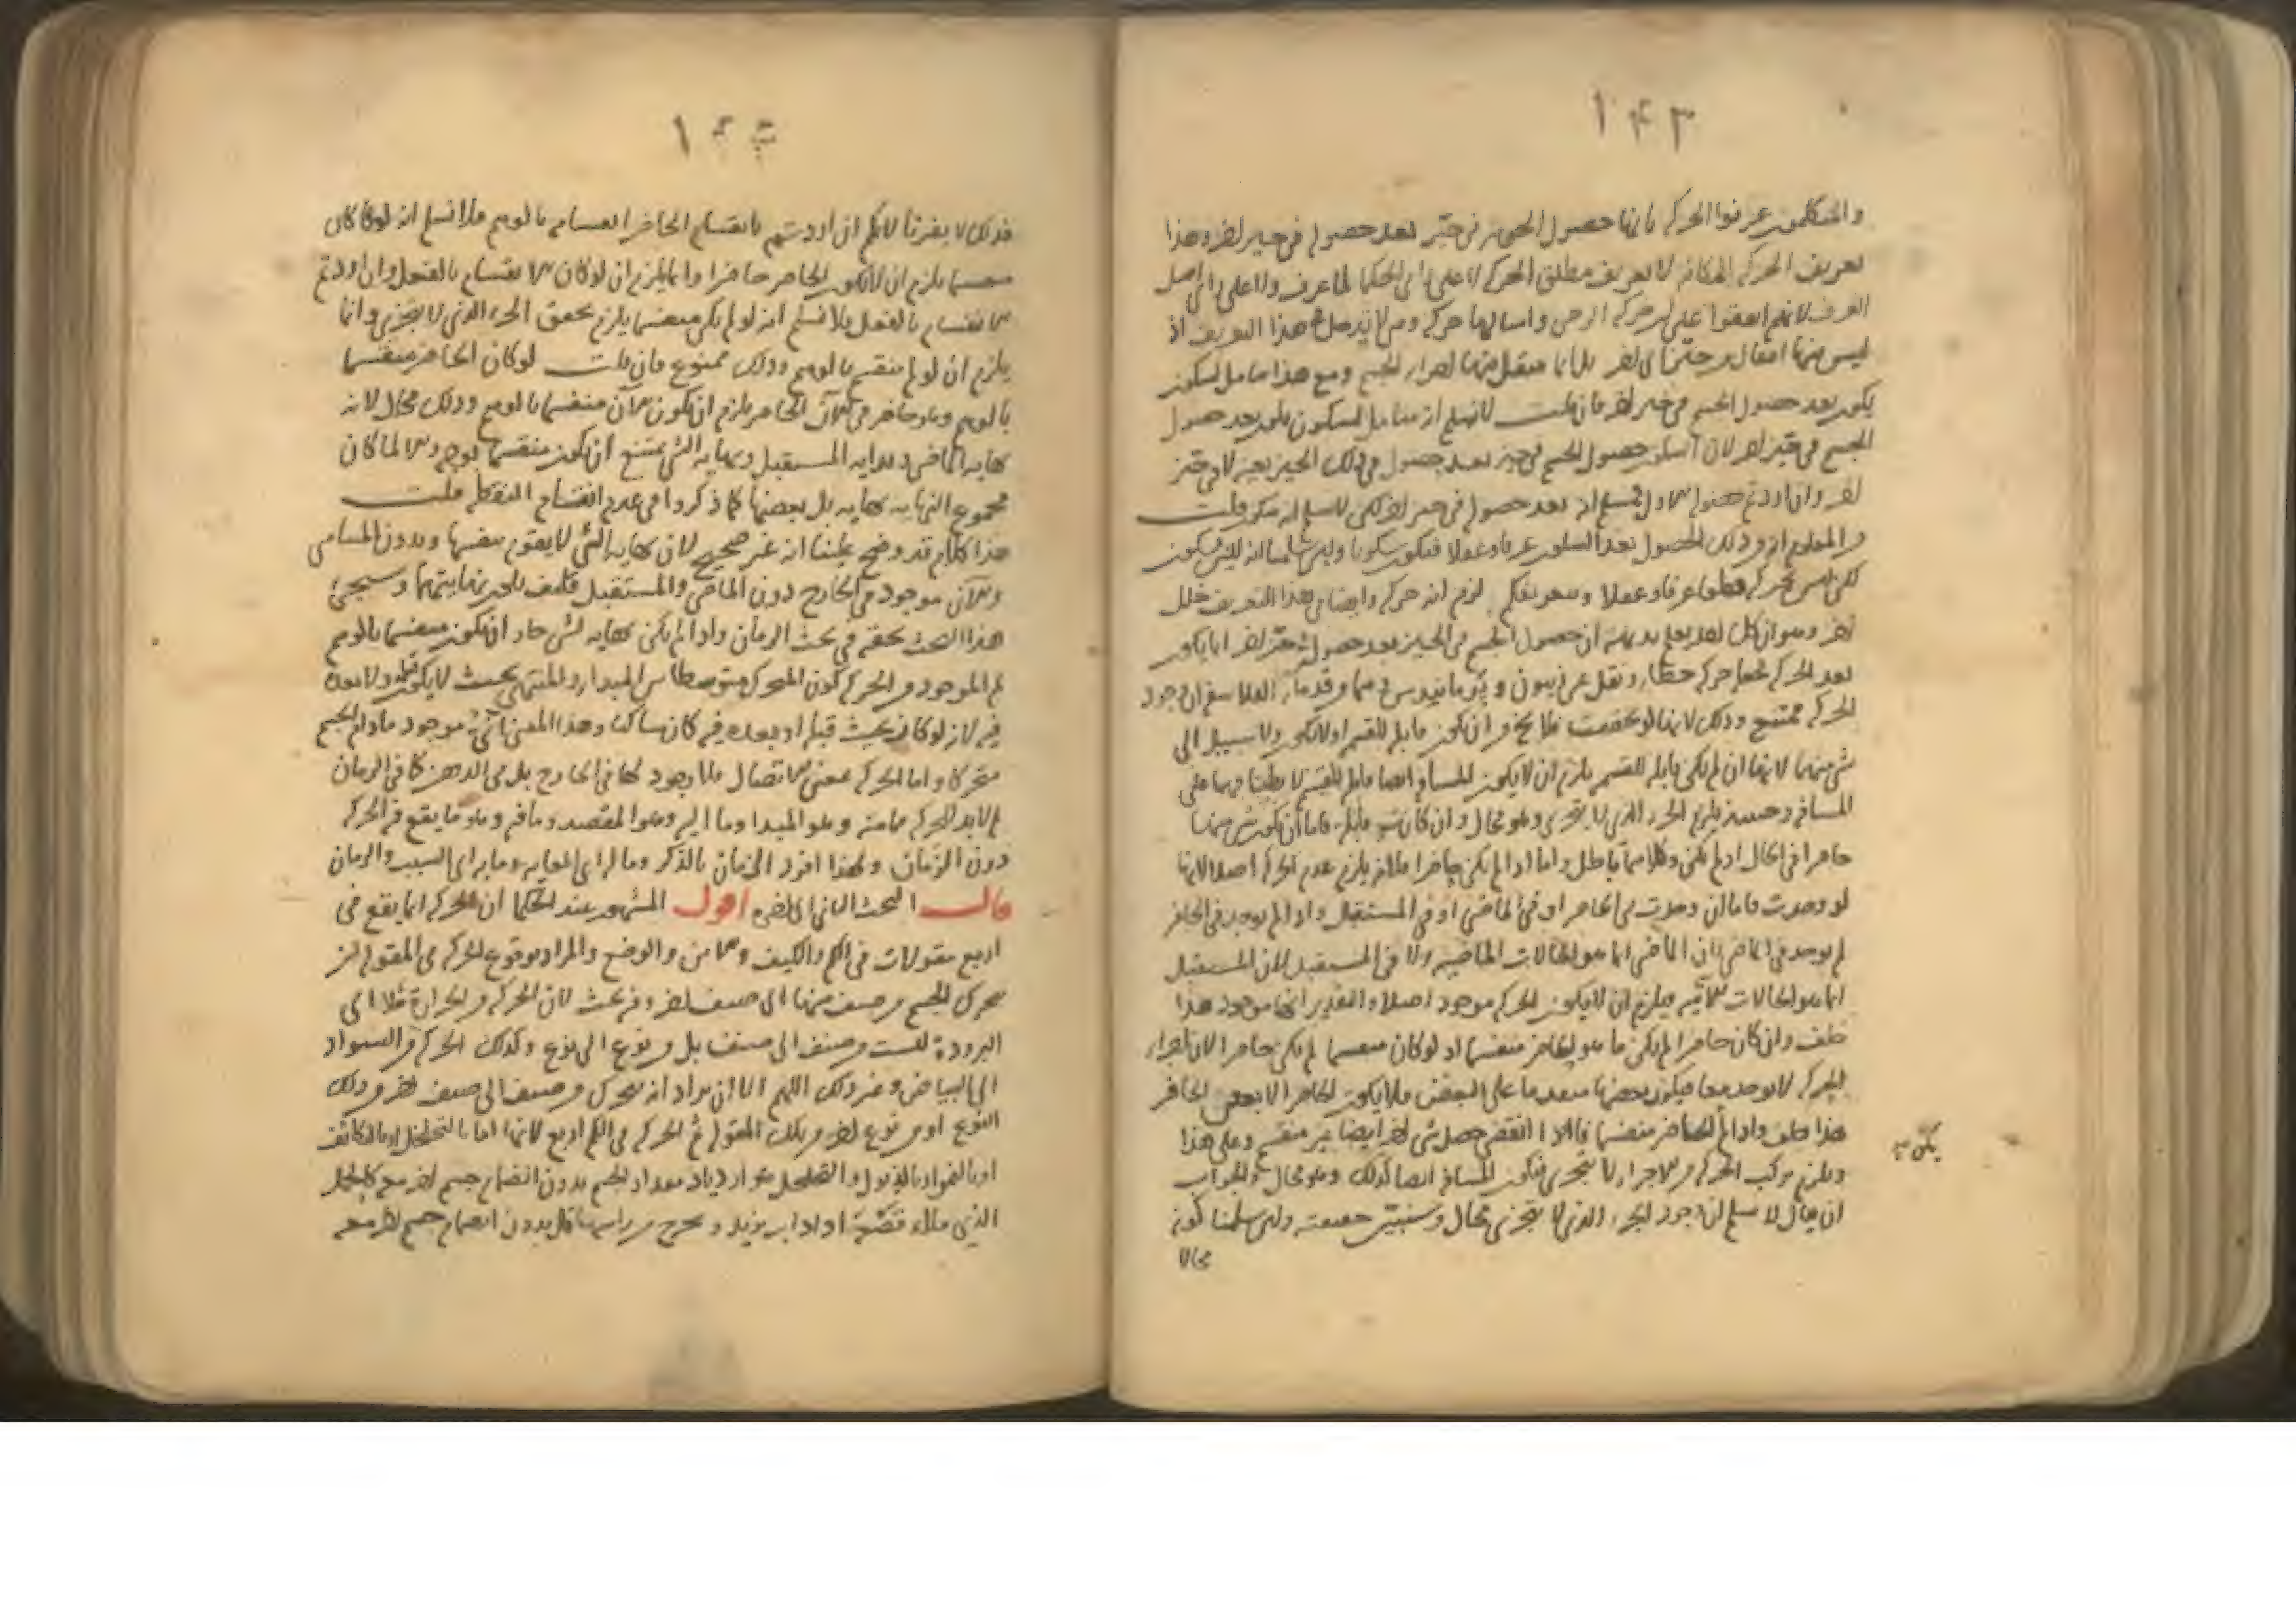 ١٤٣
والمتكلمون عرفوا الحركة بانها حصول الجوهر فى حيز بعد حصوله فى حيز اخر وهذا
تعريف الحركة المكانية لا تعريف مطلق الحركة لا على راى الحكما لما عرف ولا على راى اهل
العرف لانهم اتفقوا على ان حركة الرحى وامثالها حركة ولا يدخل فى هذا التعريف اذ
ليس فيها انتقال من حيز الى اخر بل انما ينتقل فيها اجزاء الجسم ومع هذا السكون
يكون بعد حصول الجسم فى حيز اخر فان قلت لا نسلم ان السكون يكون بعد حصول
الجسم فى حيز اخر لان السكون حصول الجسم فى حيز بعد حصوله فى ذلك الحيز بعينه لا فى حيز
اخر وان اردتم الاول فمسلم انه بعد حصوله فى حيز اخر لكن لا نسلم انه سكون قلت
ذلك الحصول بعد السكون عرفا وعقلا فيكون سكونا
ليس بحركة قطعا عرفا وعقلا وبتعريفكم لزم انه حركة وايضا فى هذا التعريف خلل
اخر وهو ان كل احد يعلم بديهة ان حصول الجسم فى الحيز بعد حصوله فى حيز اخر انما يكون
بعد الحركة فجعله حركة خطا ونقل عن زينون وبرمانيدس وهما من قدماء الفلاسفة ان وجود
الحركة ممتنع وذلك لانها لو تحققت فلا يخ من ان تكون قابلة للقسمة او لا تكون ولا سبيل الى
شى منهما لانها ان لم تكن قابلة للقسمة يلزم ان لا يكون المسافة ايضا قابلة للقسمة لانطباقها على
المسافة وحينئذ يلزم الجزء الذى لا يتجزى وهو محال وان كانت قابلة فاما ان يكون شى منها
حاضرا فى الحال او لم يكن وكلاهما باطل اما اذا لم يكن حاضرا فلانه يلزم عدم الحركة اصلا لانها
لو وجدت فاما ان وجدت فى الحاضر او فى الماضى او فى المستقبل واذا لم يوجد فى الحاضر
لم يوجد فى الماضى لان الماضى انما هو الحالات الماضية ولا فى المستقبل لان المستقبل
انما هو الحالات الآتية فيلزم ان لا يكون الحركة موجودة اصلا والتقدير انها موجودة هذا
خلف وان كان حاضرا لم يكن ما هو الحاضر منقسما اذ لو كان منقسما لم يكن حاضرا لان اجزاء
الحركة لا توجد معا فيكون بعضها متقدما على البعض فلا يكون الحاضر الا بعض الحاضر
هذا خلف واذا لم الحاضر منقسما فاذا انقضى حصل شى اخر ايضا غير منقسم وعلى هذا
يكن صح
ويلزم تركب الحركة من الاجزاء لا يتجزى فيكون المسافة ايضا كذلك وهو محال والجواب
ان يقال لا نسلم ان وجود الجزء الذى لا يتجزى محال وسنبين حقيقته ولئن سلمنا كونه
محالا
١٤٤
فذلك لا يضرنا لانكم ان اردتم بانقسام الحاضر انقسامه بالوهم فلا نسلم انه لو كان
منقسما يلزم ان لا يكون الحاضر حاضرا وانما يلزم ان لو كان الانقسام بالفعل وان اردتم
الانقسام بالفعل فلا نسلم انه لو لم يكن منقسما يلزم تحقق الجزء الذى لا يتجزى وانما
يلزم ان لو لم ينقسم بالوهم وذلك ممنوع فان قلت لو كان الحاضر منقسما
بالوهم وهو حاضر فى الآن الحاضر يلزم ان يكون الآن منقسما بالوهم وذلك محال لانه
نهاية الماضى وبداية المستقبل ونهاية الشى يمتنع ان يكون منقسما بوجه والا لما كان
مجموع النهاية نهاية بل بعضها كما ذكروا فى عدم انقسام النقطة قلت
هذا كلام قد وضح علينا انه غير صحيح لان نهاية الشى لا يقوم بنفسها وبدون المتناهى
والآن موجود فى الخارج دون الماضى والمستقبل فكيف يكون نهايتهما وسيجئ
هذا البحث بحقه فى بحث الزمان واذا لم يكن نهاية لشى جاز ان يكون منقسما بالوهم
ثم الموجود من الحركة كون المتحرك متوسطا بين المبدا والمنتهى بحيث لا يكون قبله ولا بعده
فيه لانه لو كان بحيث قبله او بعده فيه كان ساكنا وهذا المعنى موجود ما دام الجسم
متحركا واما الحركة بمعنى الاتصال فلا وجود لها فى الخارج بل فى الذهن كما فى الزمان
ثم لا بد للحركة مما منه وهو المبدا وما اليه وهو المقصد وما فيه وهو ما يقع فيه الحركة
دون الزمان ولهذا افرد الزمان بالذكر وما له اى الغاية وما به اى السبب والزمان
قال البحث الثانى الى اخره اقول المشهور عند الحكما ان الحركة انما يقع فى
اربع مقولات فى الكم والكيف والاين والوضع والمراد بوقوع الحركة فى المقولة ان
يتحرك الجسم من صنف منها الى صنف اخر وفيه بحث لان الحركة من الحرارة مثلا الى
البرودة ليست من صنف الى صنف بل من نوع الى نوع وكذلك الحركة من السواد
الى البياض وغير ذلك اللهم الا ان يراد انه يتحرك من صنف الى صنف اخر من ذلك
النوع او من نوع اخر من تلك المقولة ثم الحركة فى الكم اربع لانها اما بالتخلخل او بالتكاثف
او بالنمو او بالذبول والتخلخل هو ازدياد مقدار الجسم بدون انضمام جسم اخر معه كالخل
الذى ملاء قنينة اذا يزيد ويخرج من راسها بدون انضمام جسم اخر معه